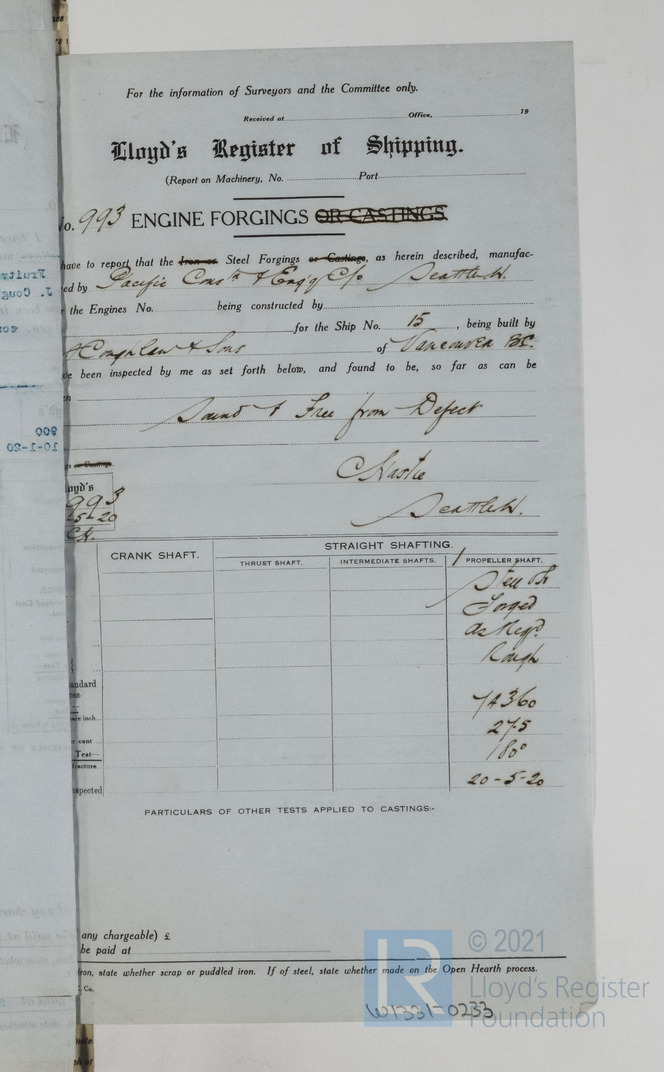 For the information of Surveyors and the Committee only.
Received at Office, 19
Lloyd's Register of Shipping.
(Report on Machinery, No. Port
No. 993 ENGINE FORGINGS OR CASTINGS.
have to report that the Iron or Steel Forgings or Castings, as herein described, manufac-
ed by Pacific Cons & Eng'g C/o Seattle W.
the Engines No. being constructed by
for the Ship No. 15, being built by
Coughlan & Sons of Vancouver BC.
ve been inspected by me as set forth below, and found to be, so far as can be
en
Sound & Free from Defect
gs or Castings.
Seattle W.
loyd's
993
5-20
CRANK SHAFT. STRAIGHT SHAFTING.
THRUST SHAFT. INTERMEDIATE SHAFTS. 1 PROPELLER SHAFT.
Steel
Forged
As Req'd.
Rough
andard
are inch 74360
r cent 27.5
Test 180°
fracture
nspected 20-5-20
PARTICULARS OF OTHER TESTS APPLIED TO CASTINGS:-
any chargeable) £
be paid at
iron, state whether scrap or puddled iron. If of steel, state whether made on the Open Hearth process.
Co.
W1331-0233
© 2021
Lloyd's Register
Foundation
LR
Fruitv
J. Coug
900
10-1-20